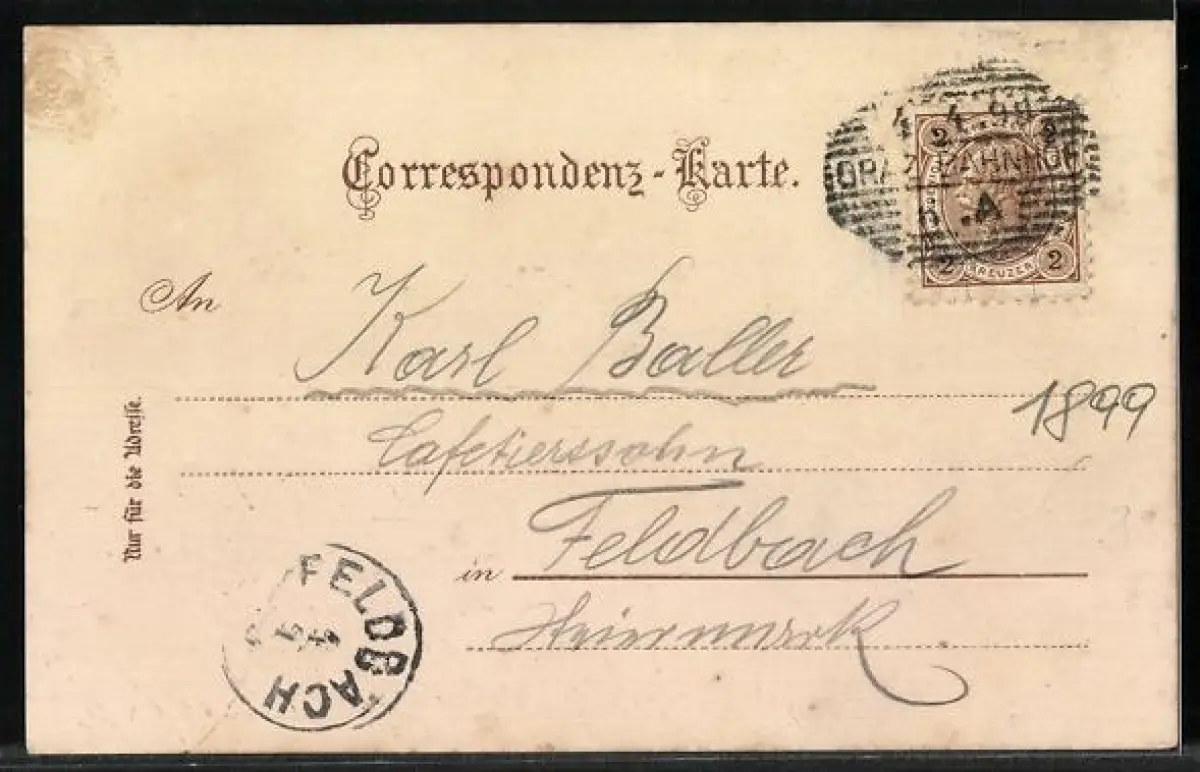 Correspondenz-Karte.
4 4 99
GRAZ BAHNHOF
A
2 2
2 KREUZER 2
An Karl Baller
1899
Cafetierssohn
Nur für die Adresse.
in Feldbach
Steiermark
FELDBACH